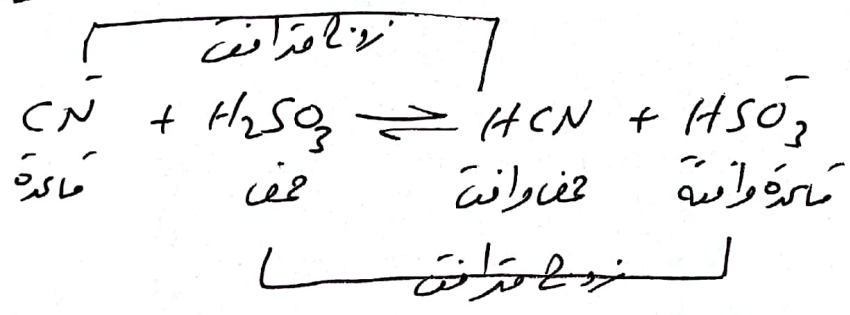 زوج مترافق
CN⁻ + H₂SO₃ ⇌ HCN + HSO₃⁻
قاعدة حمض حمض مرافق قاعدة مرافقة
زوج مترافق